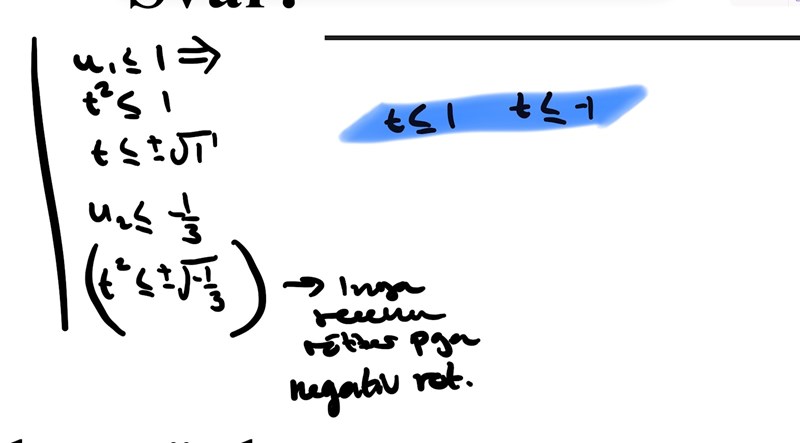 Svar:
u₁ ≤ 1 ⇒
t² ≤ 1
t ≤ ±√1
t ≤ 1 t ≤ -1
u₂ ≤ -1/3
(t² ≤ ±√-1/3) → Inga
reella
rötter pga
negativ rot.